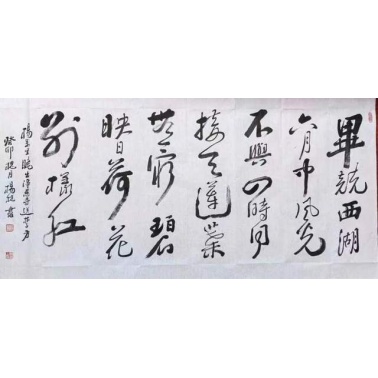 畢競西湖
六月中風光
不與四時同
接天蓮葉
無窮碧
映日荷花
別樣紅
楊萬里曉出淨慈寺送林子方
癸卯